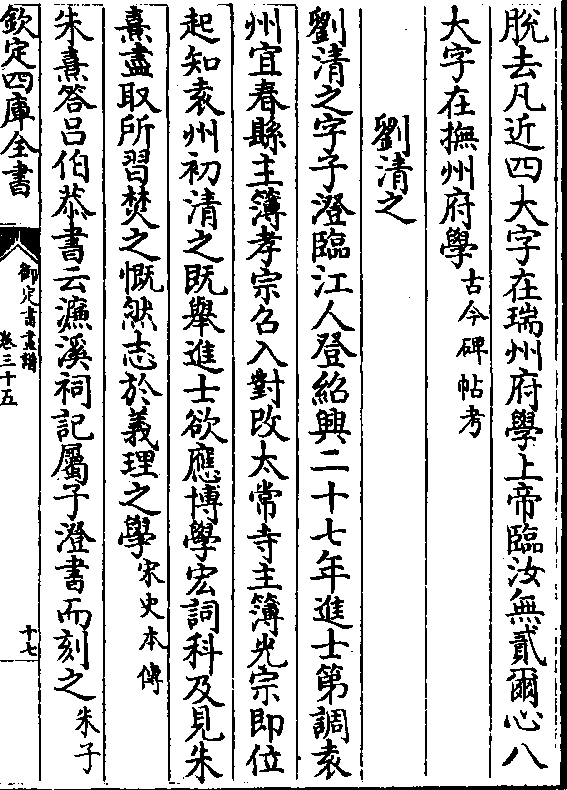 脫去凡近四大字在瑞州府學上帝臨汝無貳爾心八
大字在撫州府學古今碑帖考
劉清之
劉清之字子澄臨江人登紹興二十七年進士第調袁
州宜春縣主簿孝宗召入對改太常寺主簿光宗即位
起知袁州初清之既舉進士欲應博學宏詞科及見朱
熹盡取所習焚之慨然志於義理之學宋史本傳
朱熹答呂伯恭書云濂溪祠記屬子澄書而刻之朱子
欽定四庫全書
御定書畫譜
卷三十五
十七